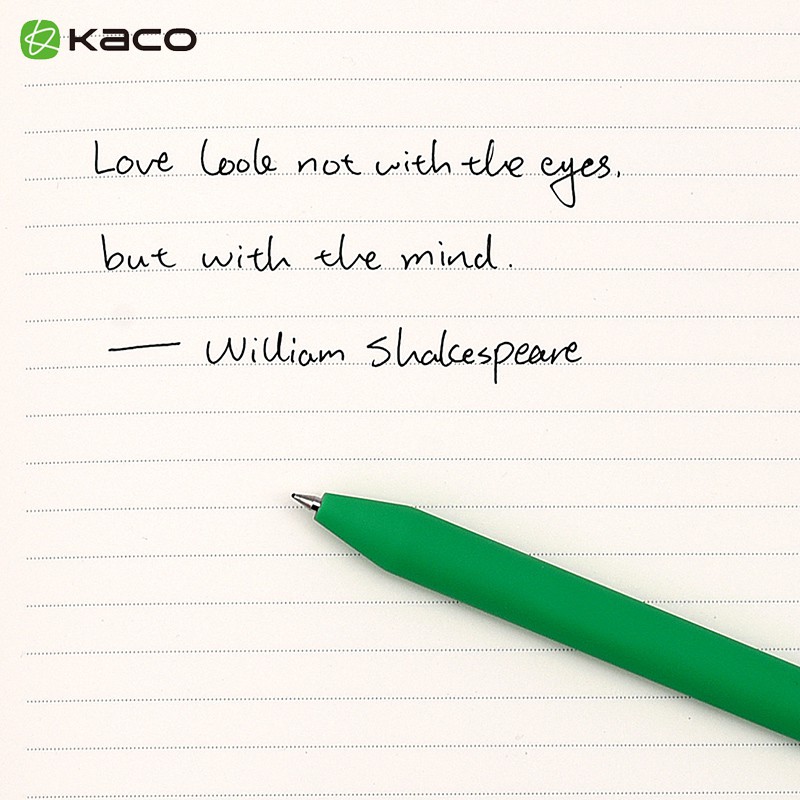 KACO
Love look not with the eyes.
but with the mind.
— William Shakespeare